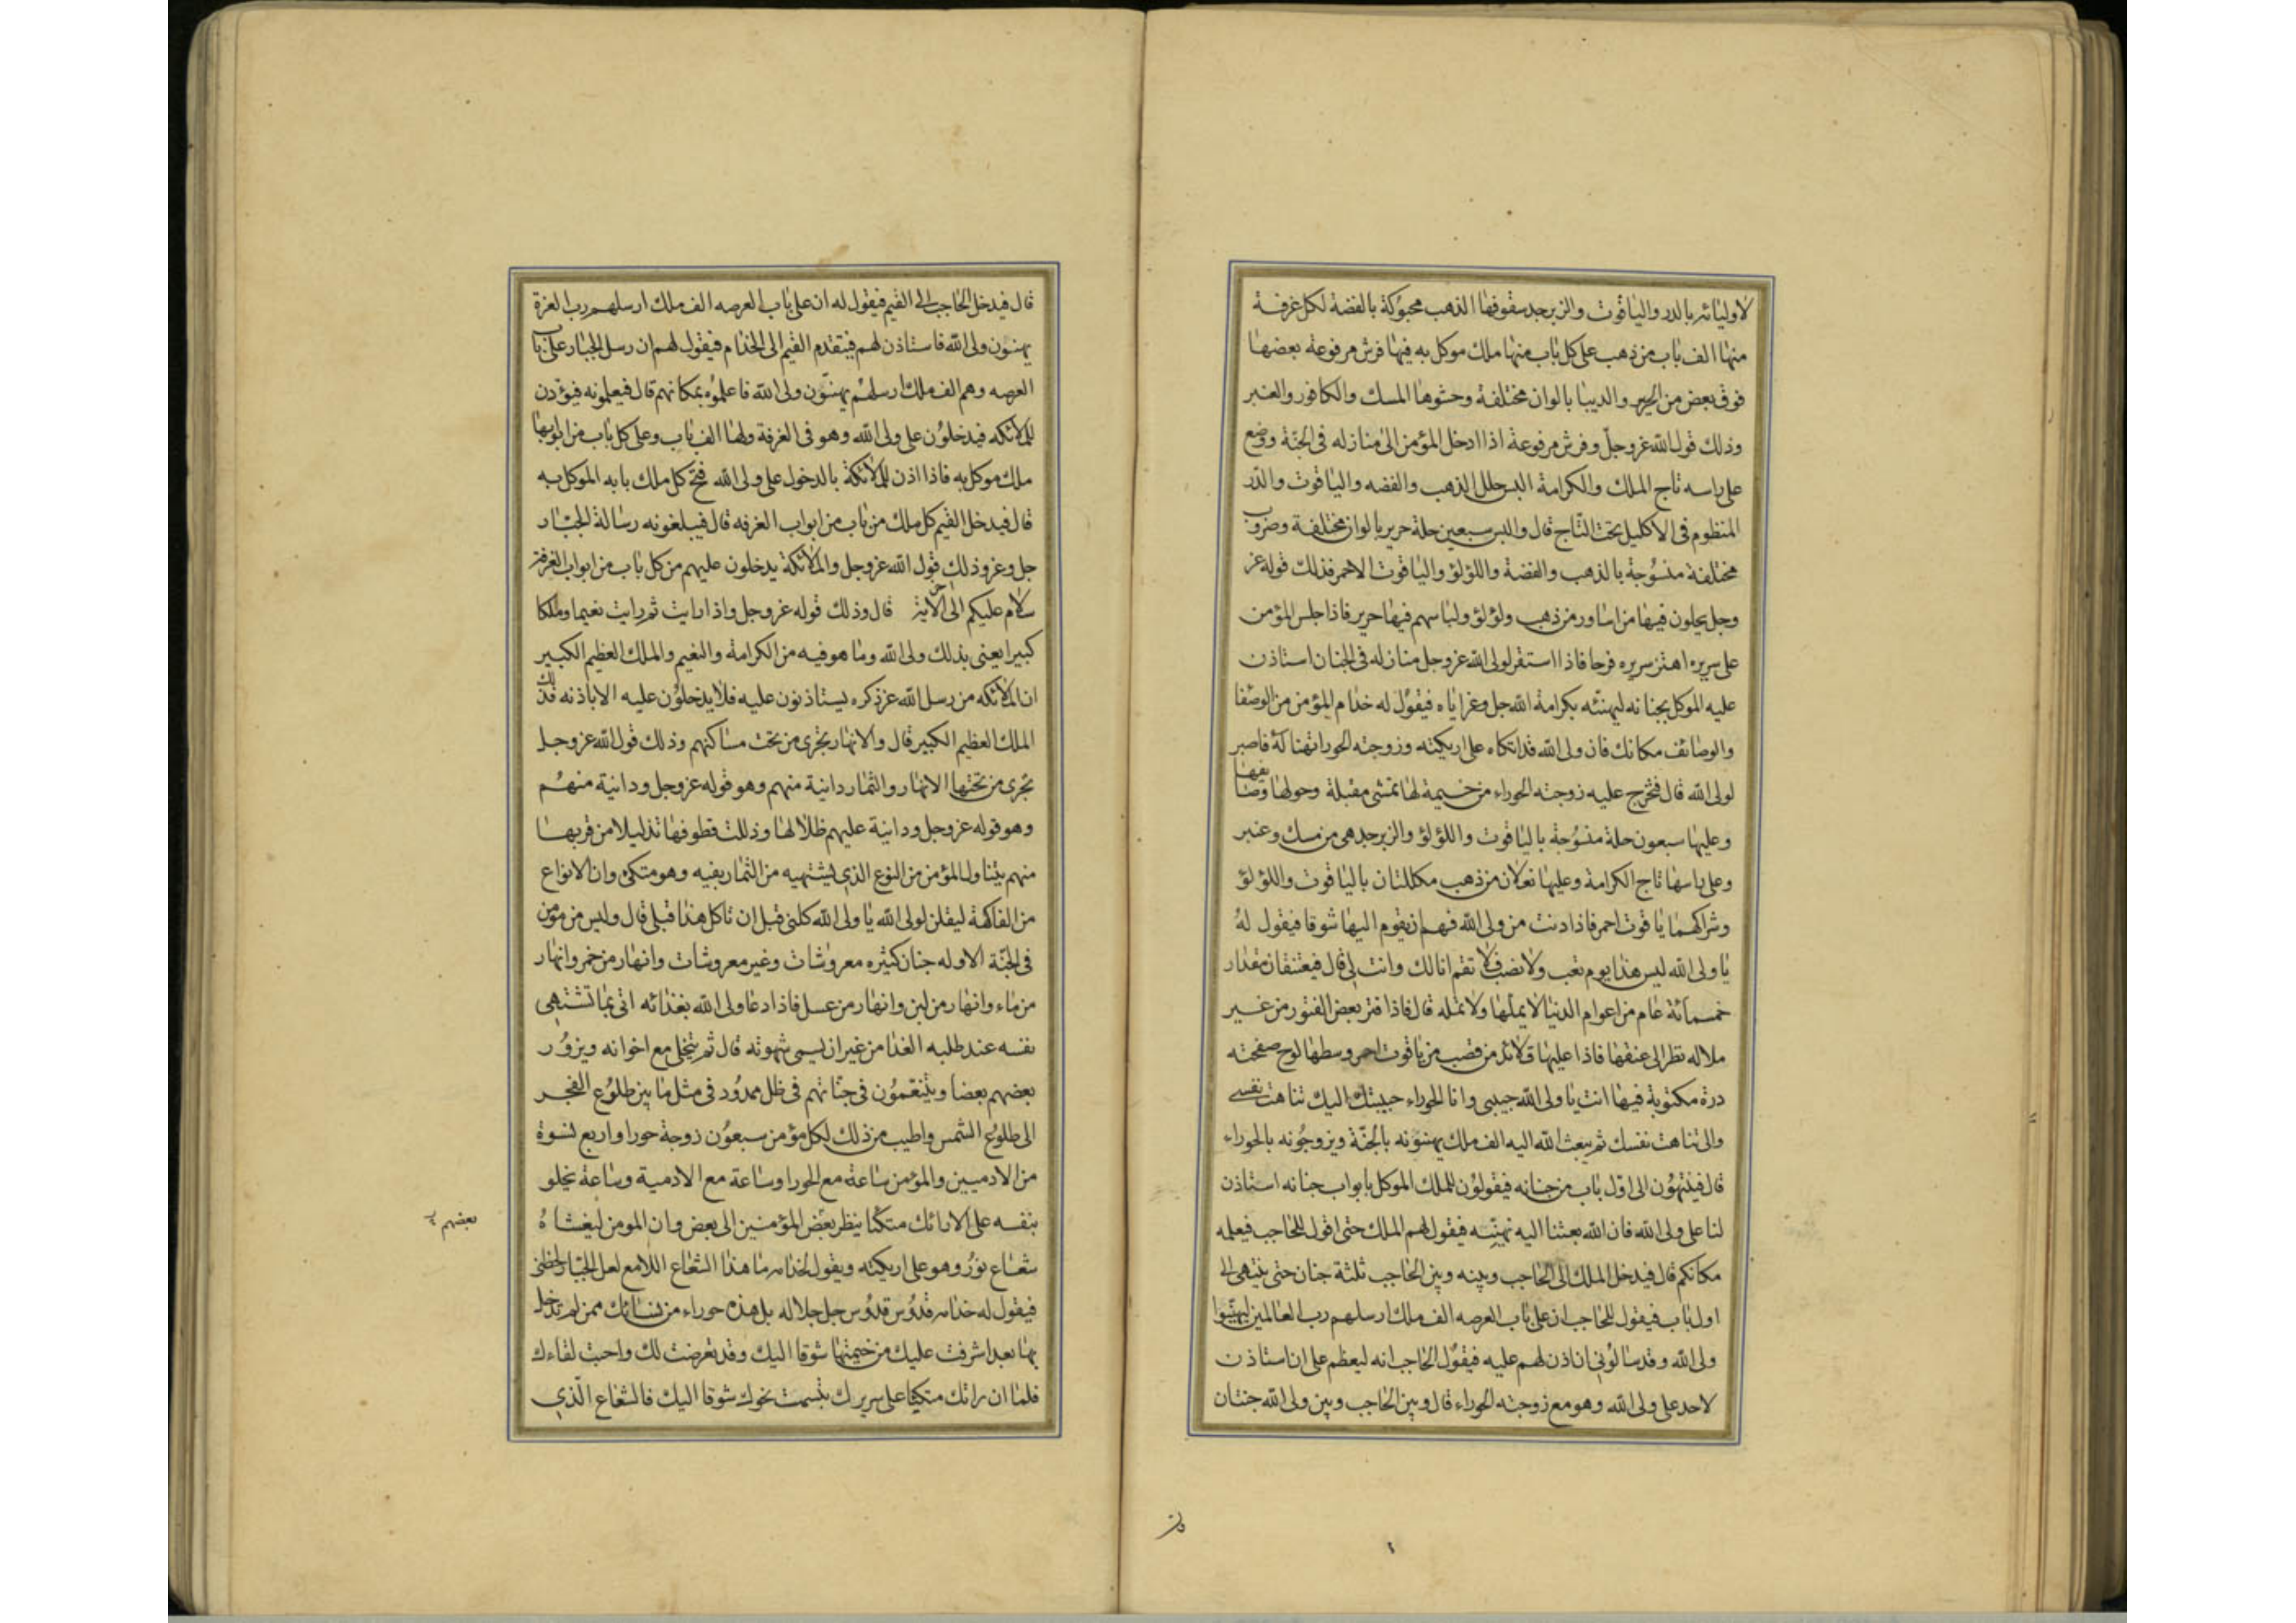 لاوليائه بالدر والياقوت والزبرجد سقوفها الذهب محبوكة بالفضة لكل غرفة
منها الف باب من ذهب على كل باب منها ملك موكل به فيها فرش مرفوعة بعضها
فوق بعض من الحرير والديبا بالوان مختلفة وحشوها المسك والكافور والعنبر
وذلك قول الله عز وجل وفرش مرفوعة اذا ادخل المؤمن الى منازله في الجنة ووضع
على راسه تاج الملك والكرامة البس حلل الذهب والفضه والياقوت والدر
المنظوم في الاكليل تحت التاج قال والبس سبعين حلة حرير بالوان مختلفة وضروب
مختلفة منسوجة بالذهب والفضة واللؤلؤ والياقوت الاحمر فذلك قوله عز
وجل يحلون فيها من اساور من ذهب ولؤلؤ ولباسهم فيها حرير فاذا جلس المؤمن
على سريره اهتز سريره فرحا فاذا استقر لولى الله عز وجل منازله في الجنان استاذن
عليه الموكل بجنانه ليهنئه بكرامة الله جل وعز اياه فيقول له خدام المؤمن من الوصفا
والوصائف مكانك فان ولى الله قد اتكاه على اريكته وزوجته الحورا تهنا له فاصبر
لولى الله قال فتخرج عليه زوجته الحوراء من خيمة لها تمشى مقبلة وحولها وصايفها
وعليها سبعون حلة منسوجة بالياقوت واللؤلؤ والزبرجد هى من مسك وعنبر
وعلى راسها تاج الكرامة وعليها نعلان من ذهب مكللتان بالياقوت واللؤلؤ
وشراكهما ياقوت احمر فاذا دنت من ولى الله فهم ان يقوم اليها شوقا فيقول له
يا ولى الله ليس هذا يوم تعب ولا نصب فلا تقم انا لك وانت لى قال فيعتنقان مقدار
خمسمائة عام من اعوام الدنيا لا يملها ولا تمله قال فاذا فتر بعض الفتور من غير
ملاله نظر الى عنقها فاذا عليها قلائد من قصب من ياقوت احمر وسطها لوح صفحته
درة مكتوبة فيها انت يا ولى الله حبيبى وانا الحوراء حبيبتك اليك تناهت نفسى
والى تناهت نفسك ثم يبعث الله اليه الف ملك يهنئونه بالجنة ويزوجونه بالحوراء
قال فينتهون الى اول باب من جنانه فيقولون للملك الموكل بابواب جنانه استاذن
لنا على ولى الله فان الله بعثنا اليه نهنئه فيقول لهم الملك حتى اقول للحاجب فيعلمه
مكانكم قال فيدخل الملك الى الحاجب وبينه وبين الحاجب ثلثة جنان حتى ينتهى الى
اول باب فيقول للحاجب ان على باب العرصه الف ملك ارسلهم رب العالمين ليهنئوا
ولى الله وقد سالونى ان اذن لهم عليه فيقول الحاجب انه ليعظم على ان استاذن
لاحد على ولى الله وهو مع زوجته الحوراء قال وبين الحاجب وبين ولى الله جنتان
قال فيدخل الحاجب الى القيم فيقول له ان على باب العرصه الف ملك ارسلهم رب العزة
يهنئون ولى الله فاستاذن لهم فيتقدم القيم الى الخدام فيقول لهم ان رسل الجبار على باب
العرصه وهم الف ملك ارسلهم يهنئون ولى الله فاعلموه بمكانهم قال فيعلمونه فيؤذن
للملائكه فيدخلون على ولى الله وهو في الغرفة ولها الف باب وعلى كل باب من ابوابها
ملك موكل به فاذا اذن للملائكة بالدخول على ولى الله فتح كل ملك بابه الموكل به
قال فيدخل القيم كل ملك من باب من ابواب الغرفه قال فيبلغونه رسالة الجبار
جل وعز وذلك قول الله عز وجل والملائكة يدخلون عليهم من كل باب من ابواب الغرفة
سلام عليكم الى اخر الاية قال وذلك قوله عز وجل واذا رايت ثم رايت نعيما وملكا
كبيرا يعنى بذلك ولى الله وما هو فيه من الكرامة والنعيم والملك العظيم الكبير
ان الملائكه من رسل الله عز ذكره يستاذنون عليه فلا يدخلون عليه الا باذنه فذلك
الملك العظيم الكبير قال والانهار تجرى من تحت مساكنهم وذلك قول الله عز وجل
تجرى من تحتها الانهار والثمار دانية منهم وهو قوله عز وجل ودانية منهم
وهو قوله عز وجل ودانية عليهم ظلالها وذللت قطوفها تذليلا من قربها
منهم يتناول المؤمن من النوع الذي يشتهيه من الثمار بفيه وهو متكئ وان الانواع
من الفاكهة ليقلن لولى الله يا ولى الله كلنى قبل ان تاكل هذا قبلى قال وليس من مؤمن
في الجنة الا وله جنان كثيره معروشات وغير معروشات وانهار من خمر وانهار
من ماء وانهار من لبن وانهار من عسل فاذا دعا ولى الله بغذائه اتى بما تشتهى
نفسه عند طلبه الغذا من غير ان يسمى شهوته قال ثم يتخلى مع اخوانه ويزور
بعضهم بعضا ويتنعمون في جناتهم في ظل ممدود في مثل ما بين طلوع الفجر
الى طلوع الشمس واطيب من ذلك لكل مؤمن سبعون زوجة حورا واربع نسوة
من الادميين والمؤمن ساعة مع الحورا وساعة مع الادمية وساعة يخلو
بنفسه على الارائك متكئا ينظر بعض المؤمنين الى بعض وان المومن ليغشاه
بعضهم
شعاع نور وهو على اريكته ويقول لخدامه ما هذا الشعاع اللامع لعل الجبار لحظنى
فيقول له خدامه قدوس قدوس جل جلاله بل هذه حوراء من نسائك ممن لم تدخل
بها بعد اشرفت عليك من خيمتها شوقا اليك وقد تعرضت لك واحبت لقاءك
فلما ان راتك متكئا على سريرك تبسمت نحوك شوقا اليك فالشعاع الذي